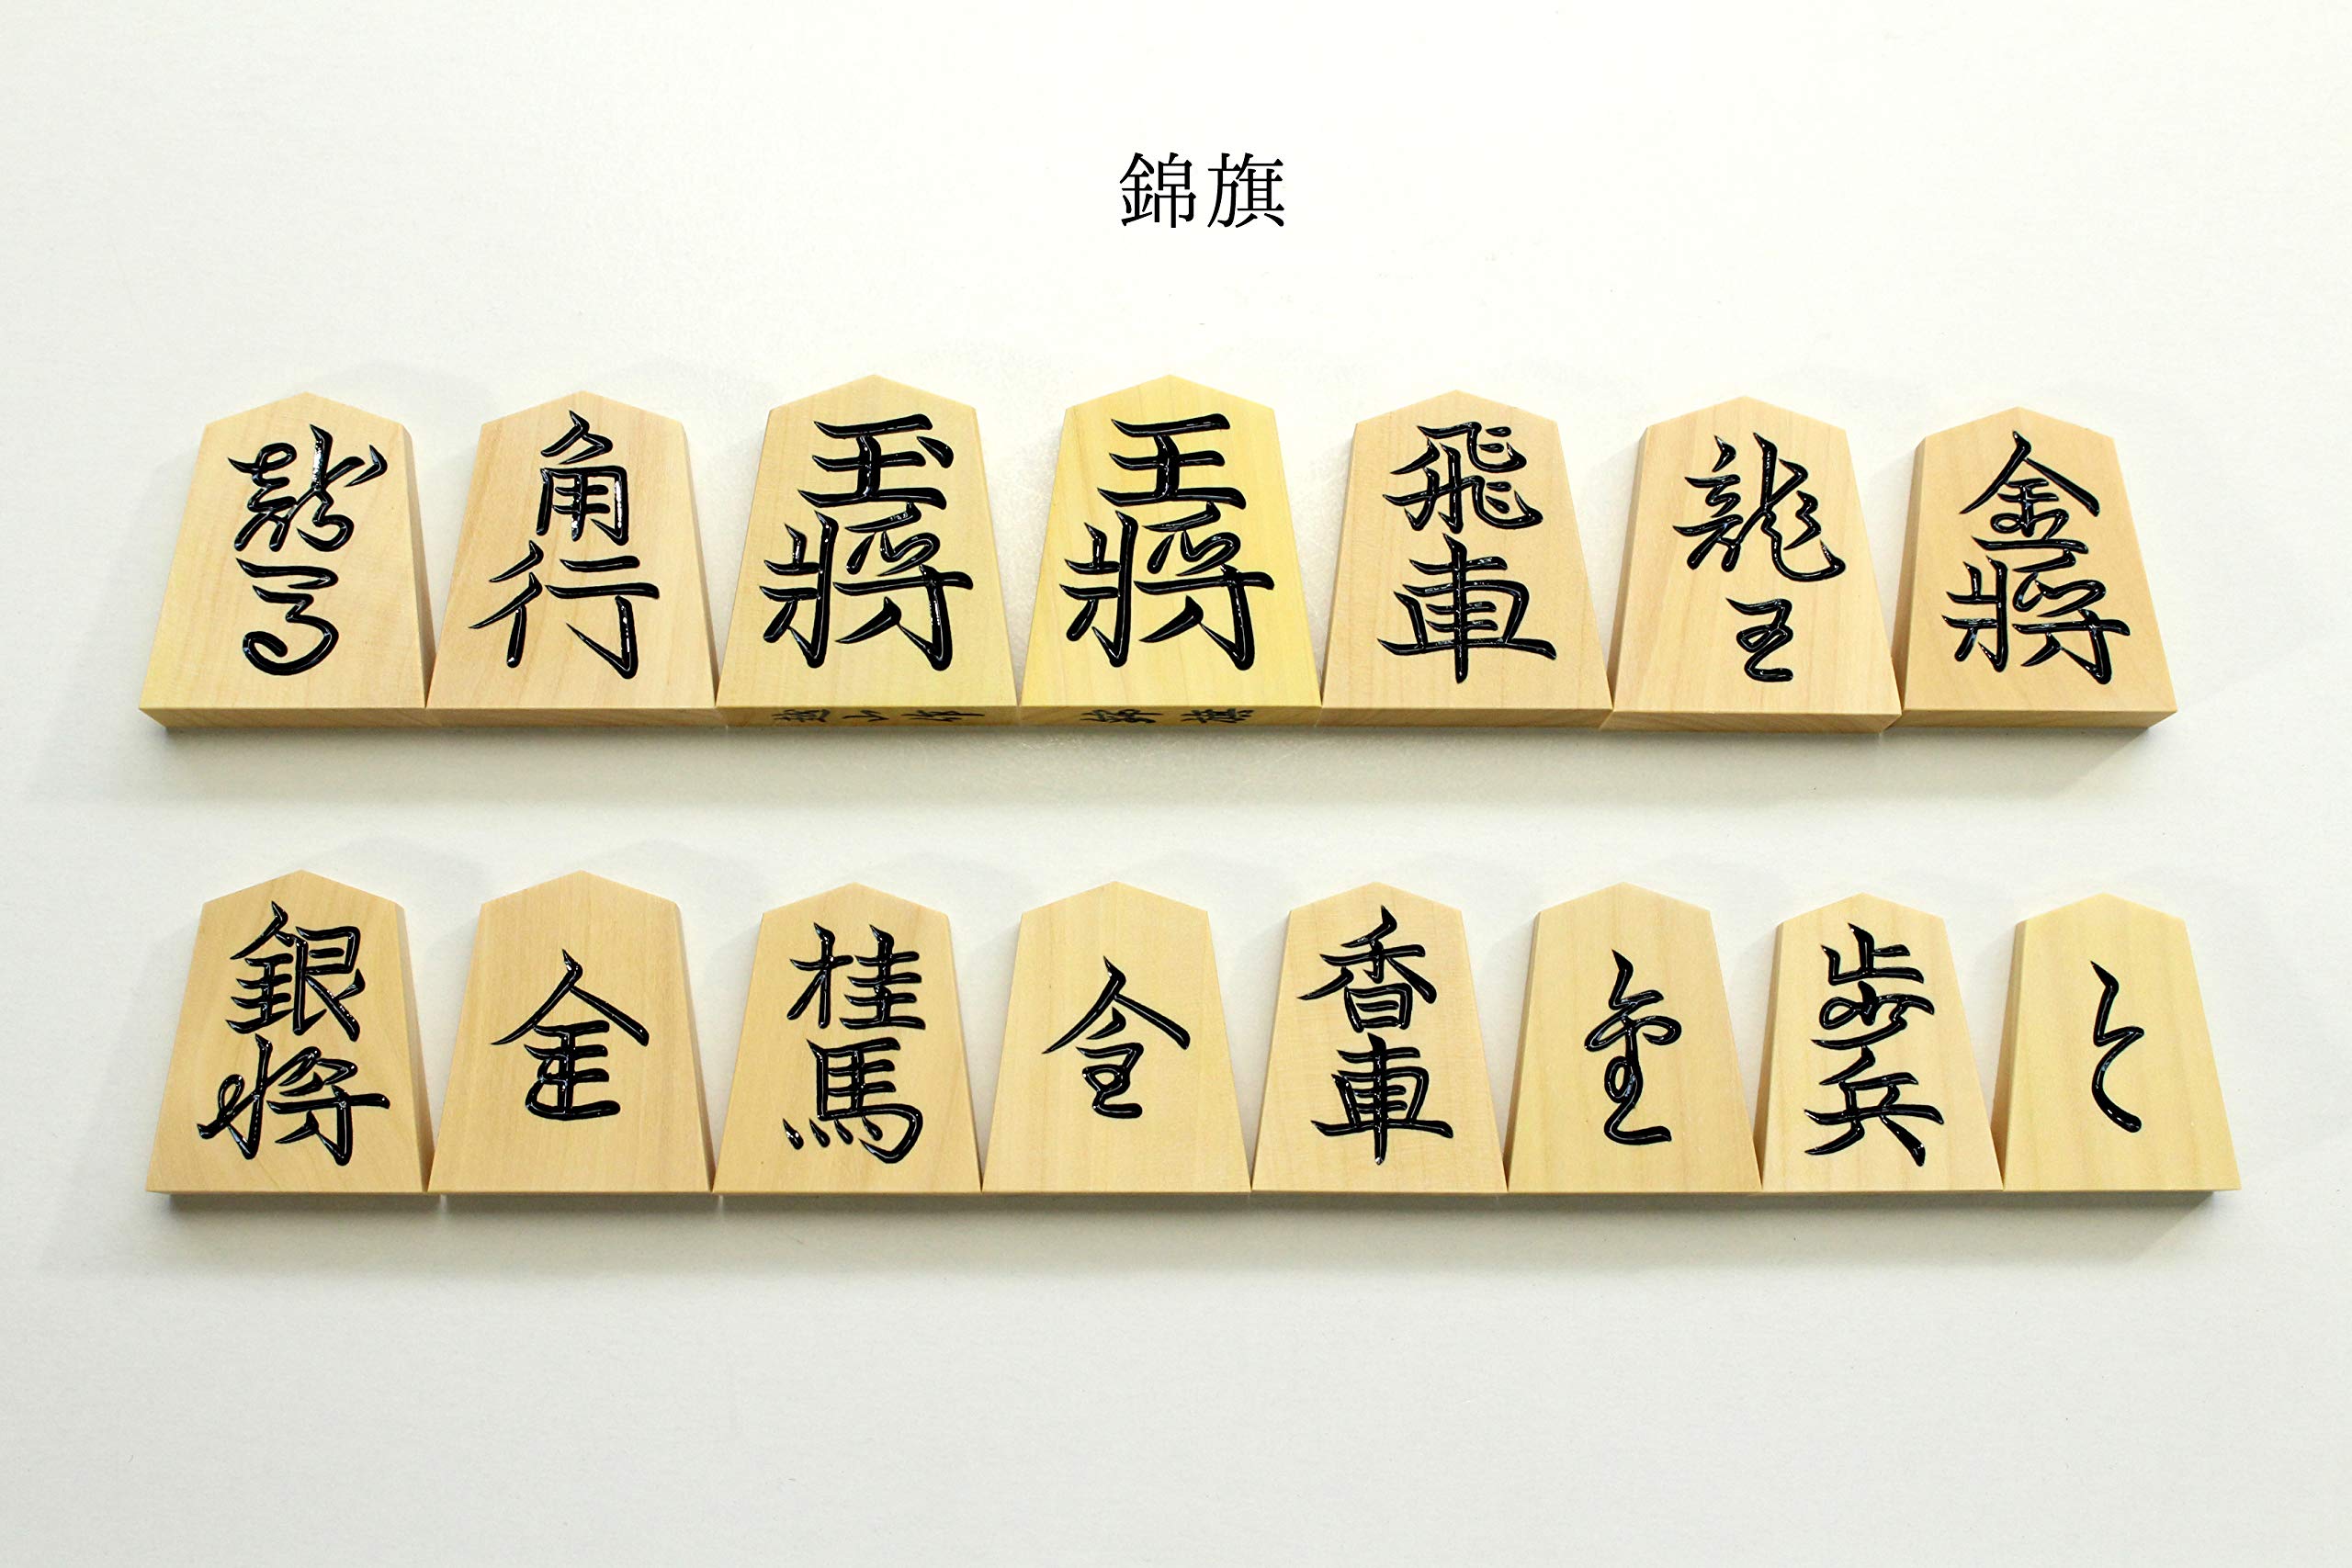 錦旗
龍馬 角行 玉將 王將 飛車 龍王 金將
銀将 全 桂馬 今 香車 歩兵 と